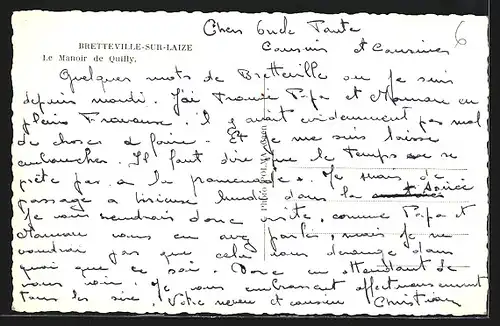 Chers Oncle Tante
Cousins et Cousines
6
BRETTEVILLE-SUR-LAIZE
Le Manoir de Quilly.
Quelques mots de Bretteville ou je suis
depuis mardi. J'ai trouvé Papa et Maman en
pleins travaux. Il y avait evidemment pas mal
de choses à faire. Et je me suis laissé
embaucher. Il faut dire que le temps ne se
prête pas à la promenade. Je serais de
passage à Lisieux lundi dans la soirée
Je vous rendrais donc visite, comme Papa et
Maman vous en ont parlé, mais je ne
voudrais pas que cela vous dérange dans
quoi que ce soit. Donc en attendant de
vous voir. Je vous embrassent affectueusement
tous les six. Votre neveu et cousin Christian